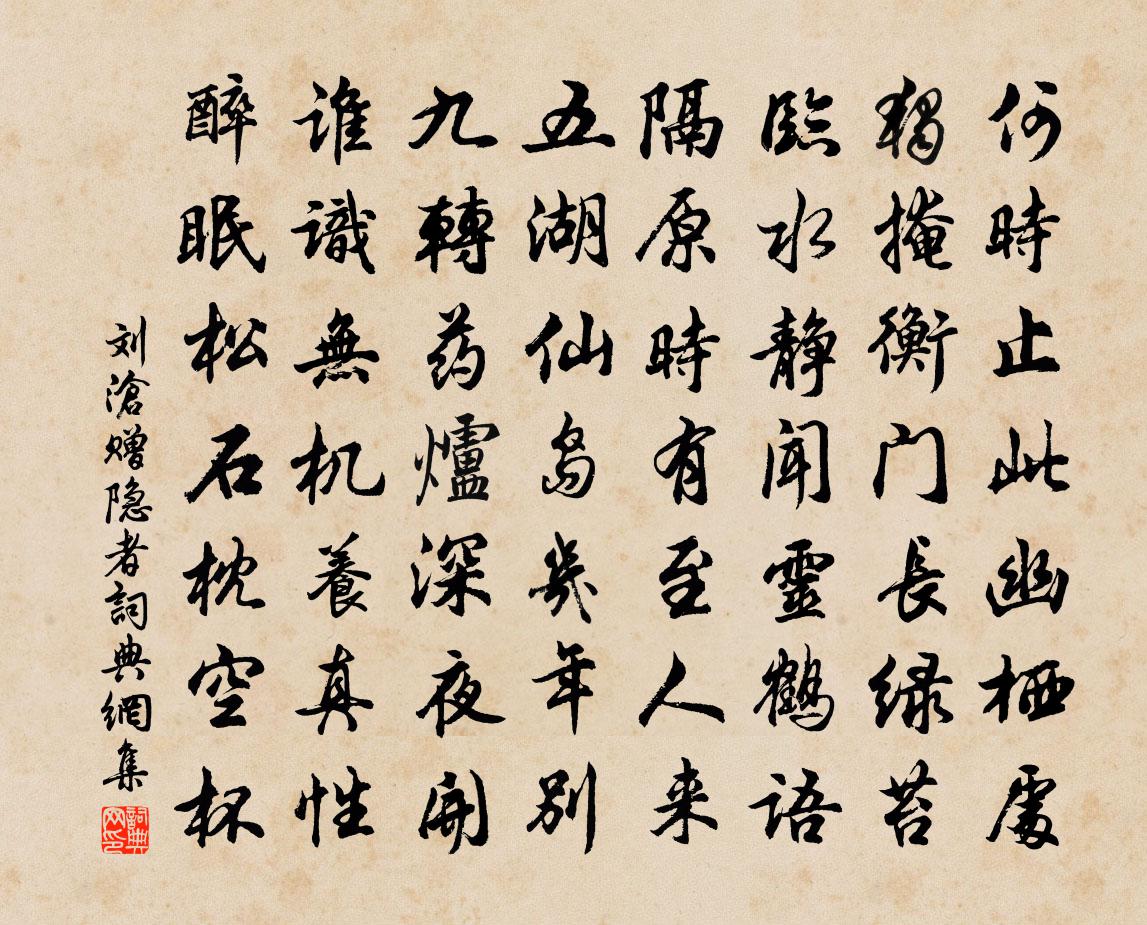 何時止此幽栖處
獨掩衡门長绿苔
臨水静闻靈鹤語
隔原時有至人来
五湖仙岛幾年别
九轉药爐深夜開
谁識無机養真性
醉眠松石枕空杯
刘滄赠隐者詞典網集
詞典网印